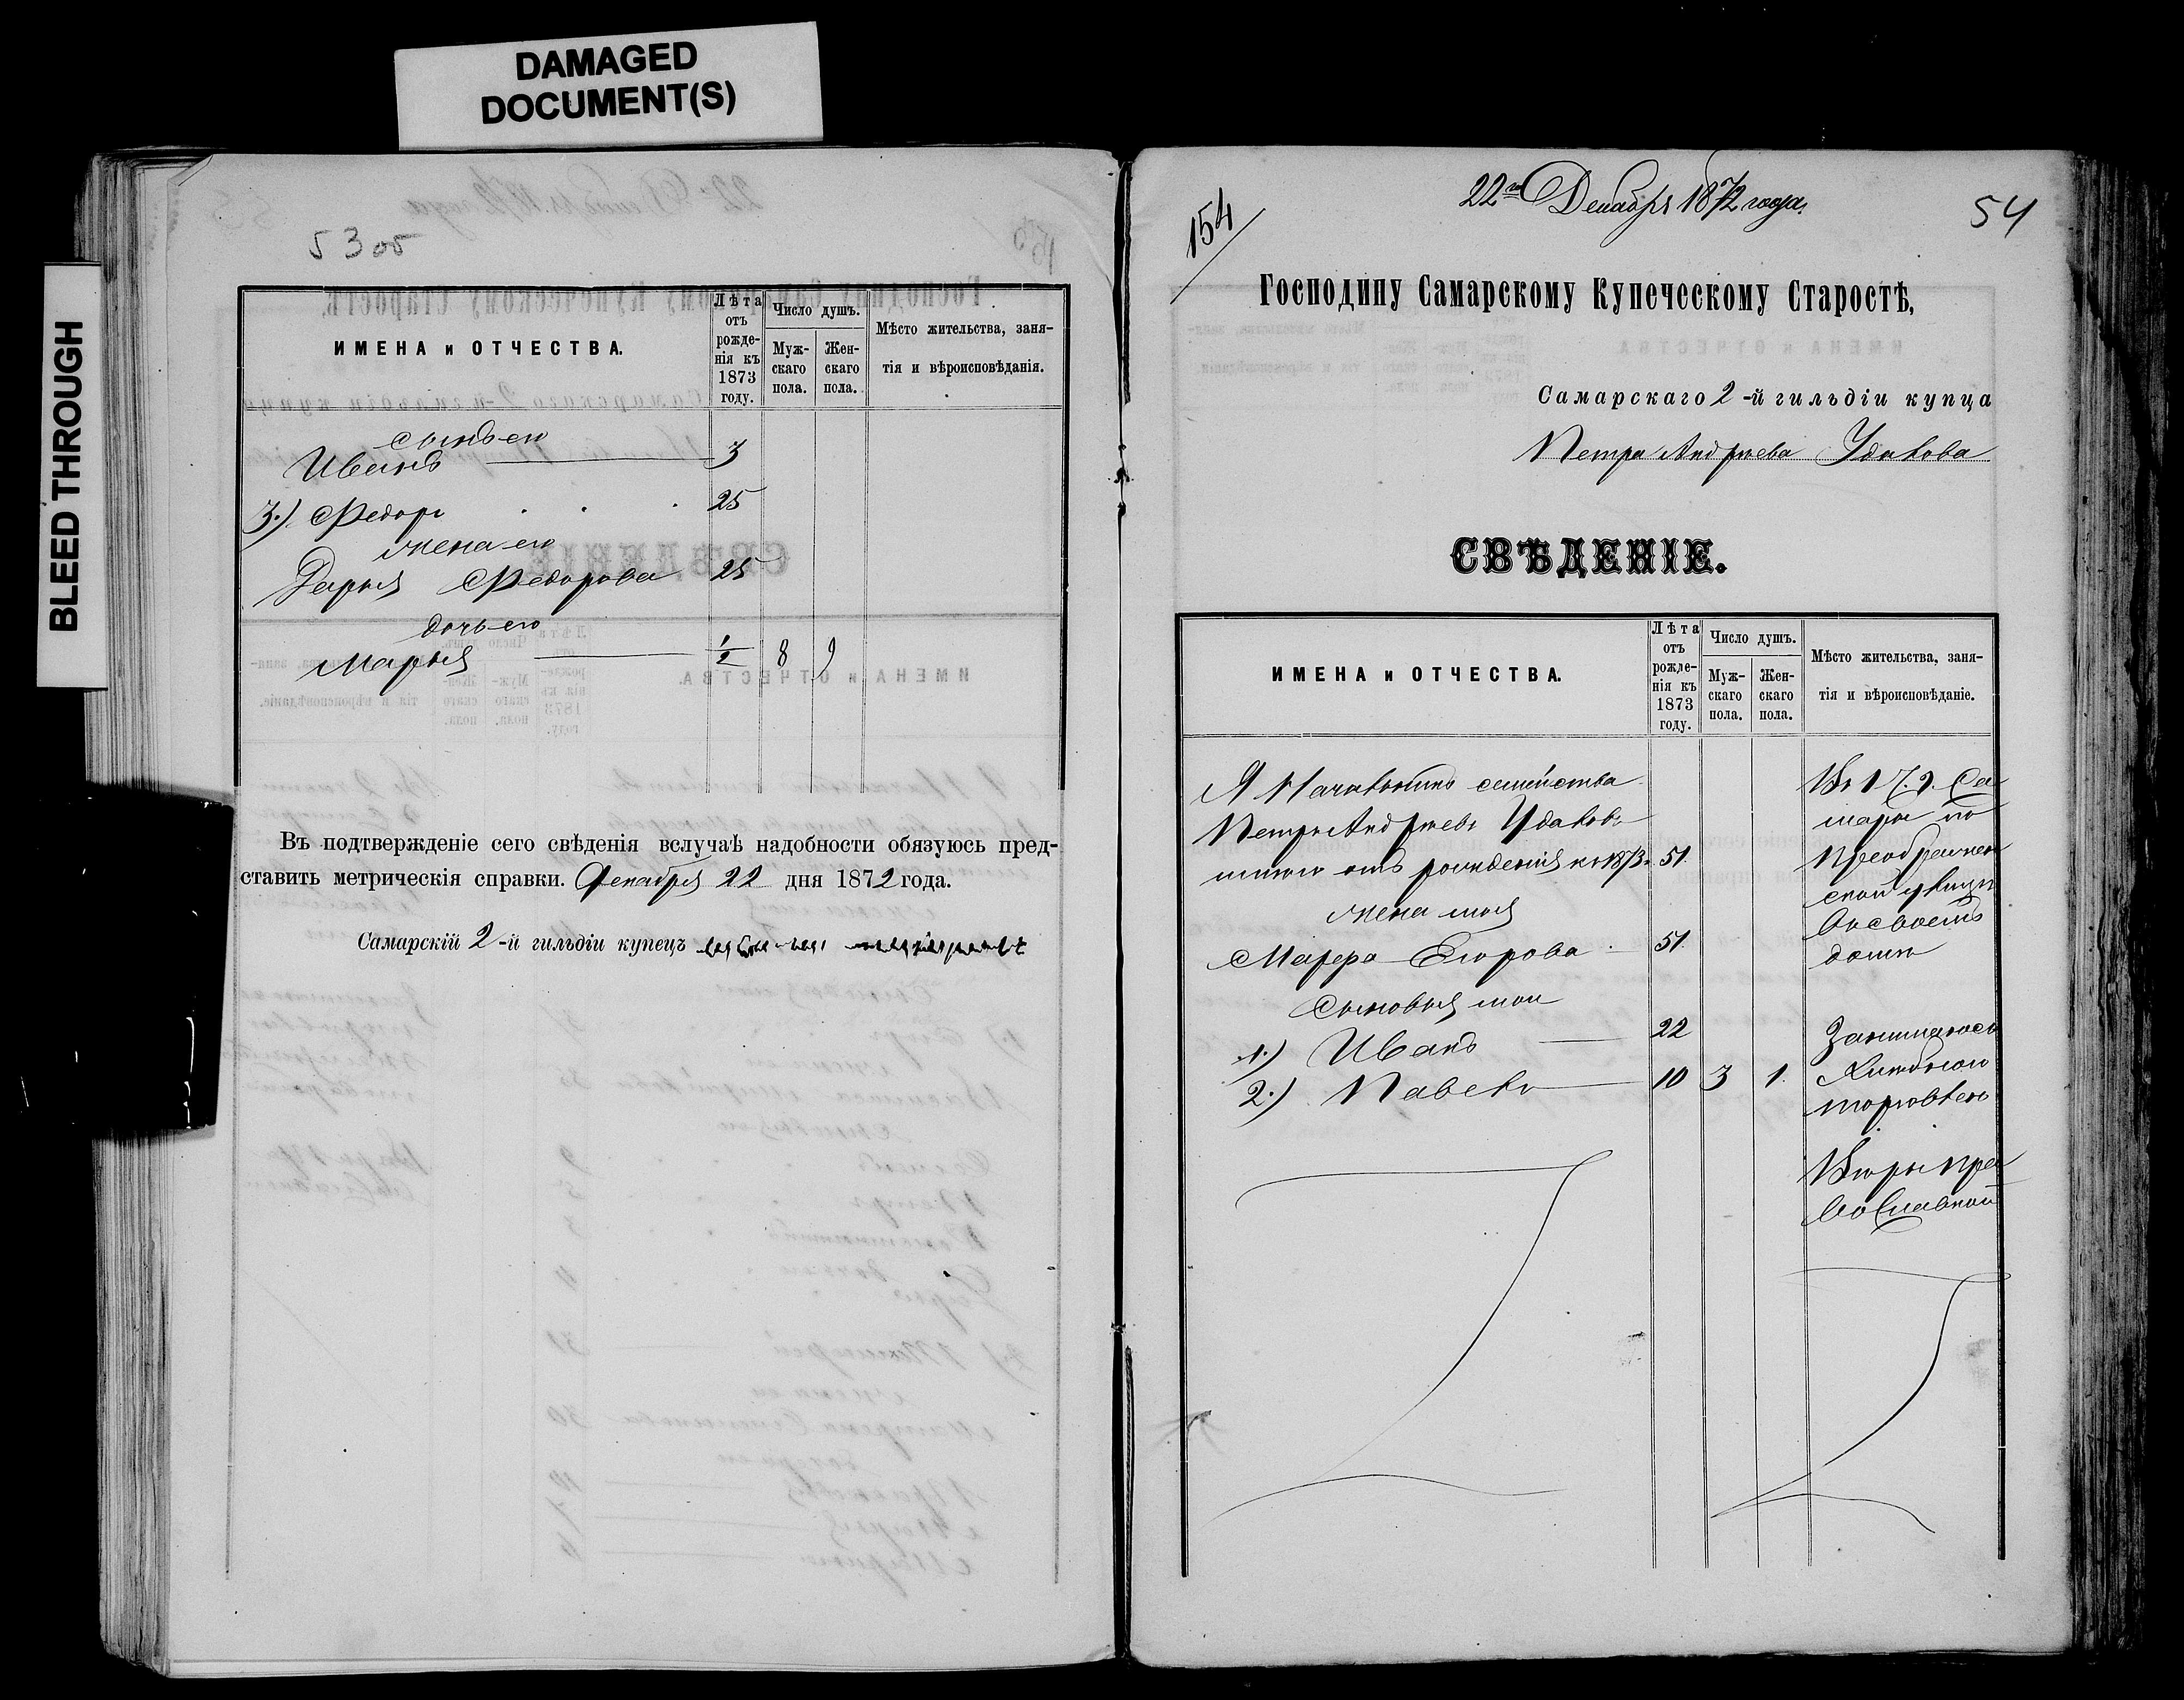 DAMAGED
DOCUMENT(S)
BLEED THROUGH
53 об
ИМЕНА и ОТЧЕСТВА.
Лѣта
отъ
рожде-
нія къ
1873
году.
Число душъ.
Муж-
скаго
пола.
Жен-
скаго
пола.
Мѣсто жительства, заня-
тія и вѣроисповѣданія.
сынъ его
Иванъ 3
3.) Федоръ 25
жена его
Дарья Федорова 25
дочь его
Марья 1/2 8 9
Въ подтвержденіе сего свѣденія вслучаѣ надобности обязуюсь пред-
ставить метрическія справки. Декабря 22 дня 1872 года.
Самарскій 2-й гильдіи купецъ
154
22го Декабря 1872 года.
54
Господину Самарскому Купеческому Старостѣ,
Самарскаго 2-й гильдіи купца
Петра Андреева Удалова
СВѢДЕНІЕ.
ИМЕНА и ОТЧЕСТВА.
Лѣта
отъ
рожде-
нія къ
1873
году.
Число душъ.
Муж-
скаго
пола.
Жен-
скаго
пола.
Мѣсто жительства, заня-
тія и вѣроисповѣданіе.
Я Начальникъ семейства
Петръ Андреевъ Удаловъ
отъ рожденія къ 1873 51.
жена моя
Марфа Егорова 51.
Сыновья мои
1.) Иванъ 22
2.) Павелъ 10 3 1.
Въ г. Са
марѣ по
Преображен
ской улицѣ
въ своемъ
домѣ
Занимаюсь
Хлѣбною
торговлею
Вѣры пра
вославной